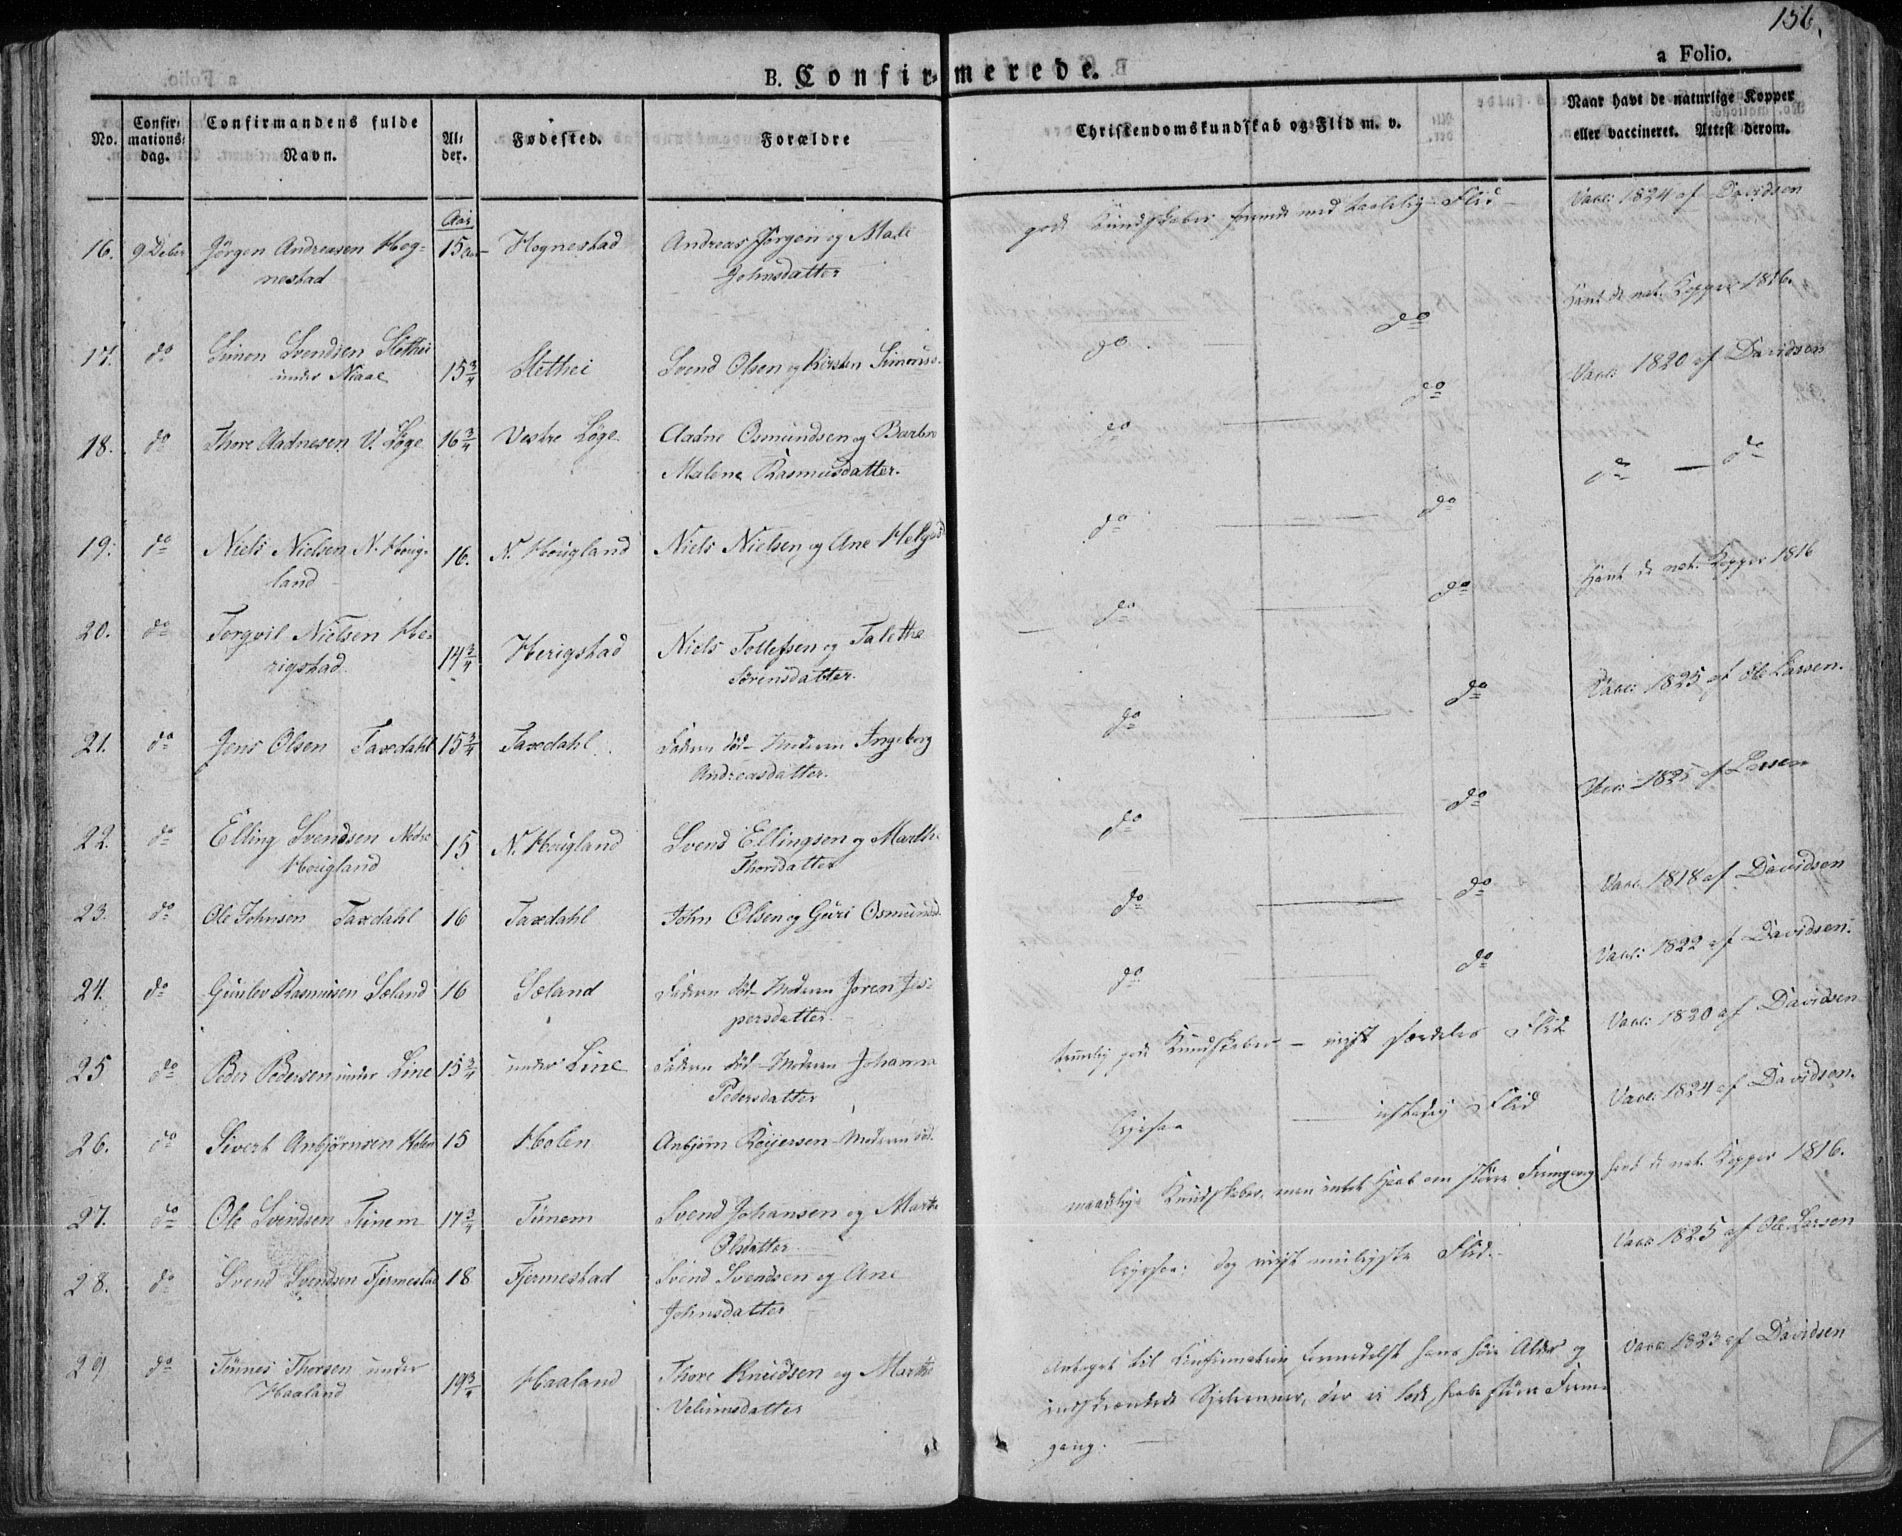 156.
a Folio.
B. Confirmerede.
No.
Confirmations-dag.
Confirmandens fulde Navn.
Alder.
Fødested.
Forældre
Christendomskundskab og Flid m. v.
Naar havt de naturlige Kopper eller vaccineret. Attest derom.
Aar
16. 9 Jørgen Andreasen Hog- 15 Hognestad Andreas Jørgen og Mali gode Kundskaber med Flid Vacc: 1824 af Davidsen
nestad Johnsdatter
17. do Simon Svendsen Slethei 15¾ Slethei Svend Olsen og Kirsten do do Havt de nat. Kopper 1816.
under Niaae
18. do Thore Aadnesen V. Løge 16¾ Vestre Løge Aadne Osmundsen og Barbro do do Vacc: 1820 af Davidsen
Malene Rasmusdatter.
19. do Niels Nielsen N. Houg- 16. N. Hougland Niels Nielsen og Ane do do do — do
land
20. do Torgvil Nielsen He- 14¾ Herigstad Niels Tollefsen og Talethe do do Havt de nat. Kopper 1816
rigstad Sørensdatter.
21. do Jens Olsen Taxedahl 15¾ Taxedahl Faderen død – Moderen Ingeborg do do Vacc: 1825 af Ole Larsen.
Andreasdatter.
22. do Elling Svendsen Nedre 15 N. Hougland Svend Ellingsen og Marthe do do Vacc: 1825 af Larsen
Hougland Thorsdatter
23. do Ole Johnsen Taxdahl 16 Taxdahl John Olsen og Guri Osmunds do do Vacc: 1818 af Davidsen
24. do Gunlev Rasmusen Sæland 16 Sæland Faderen død – Moderen Joren Jes- do do Vacc: 1822 af Davidsen.
persdatter.
25 do Peder Pedersen under Line 15¾ under Line Faderen død – Moderen Johanna temmelig gode Kundskaber – viist særdeles Flid Vacc: 1820 af Davidsen
Pedersdatter
26. do Sivert Anbjørnsen Holen 15 Holen Anbjørn Moderen død. ligesaa Flid Vacc: 1824 af Davidsen.
27. do Ole Svendsen Tunem 17¾ Tunem Svend Johansen og Marte maadelige Kundskaber, men intet Haab om større Fremgang havt de nat. Kopper 1816.
Olsdatter
28. do Svend Svendsen Fjermestad 18 Fjermestad Svend Svendsen og Ane ligesaa: dog viist muligste Flid. Vacc: 1825 af Ole Larsen
Johnsdatter
29 do Tønnes Thorsen under 19¾ Haaland Thore Knudsen og Marthe Antaget til Confirmation formedelst hans høie Alder og Vacc 1823 af Davidsen
Haaland Velumsdatter indskrænkede Sjelsevner, der ei lod haabe større Frem-
gang.